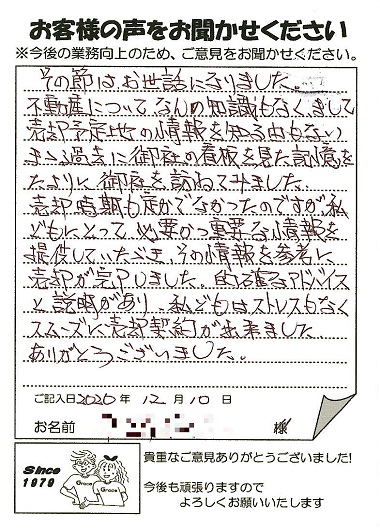 お客様の声をお聞かせください
※今後の業務向上のため、ご意見をお聞かせください。
その節はお世話になりました。
不動産についてなんの知識もなく、まして
売却予定地の情報を知る由もない
まま過去に御社の看板を見た記憶を
たよりに御社を訪ねてみました。
売却時期も定かでなかったのですが、私
どもにとって、必要かつ重要な情報を
提供していただき、その情報を参考に
売却が完了しました。的確なアドバイス
と説明があり、私どもはストレスもなく
スムーズに売却契約が出来ました
ありがとうございました。
ご記入日2020年12月10日
お名前 様
Since
1979
Grace
Grace
貴重なご意見ありがとうございました!
今後も頑張りますので
よろしくお願いいたします